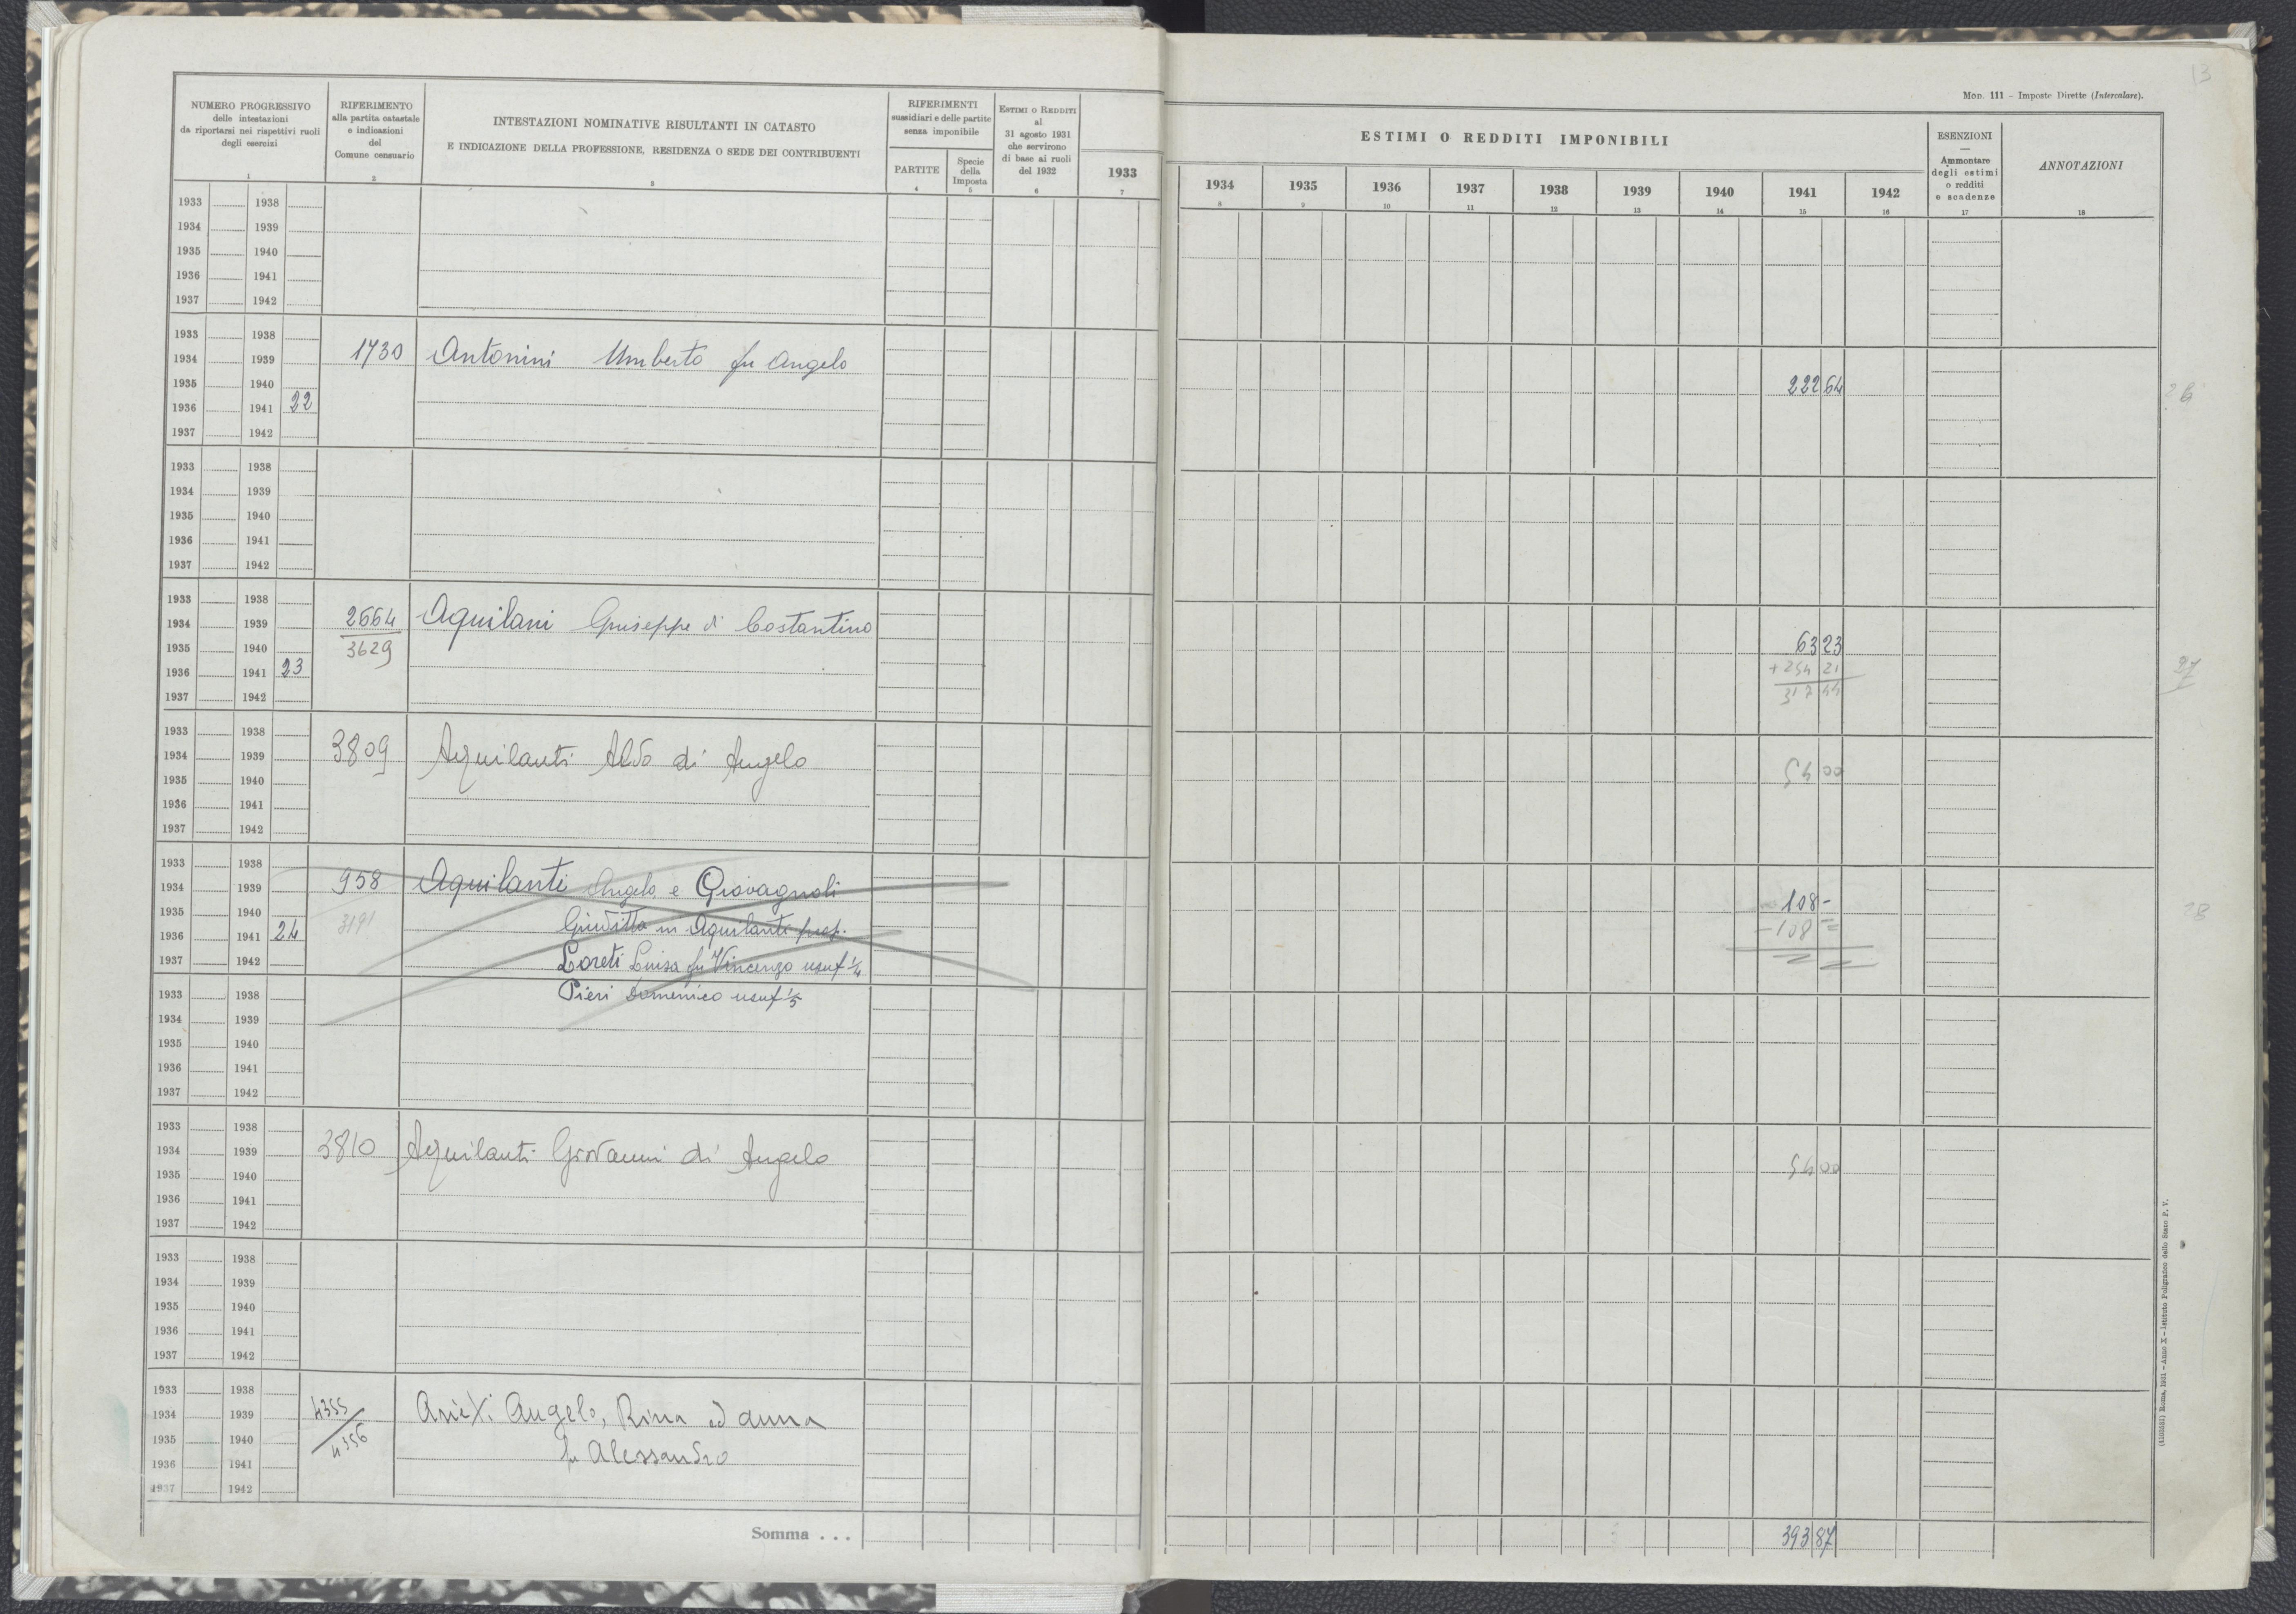 13
Mod. 111 - Imposte Dirette (Intercalare).
NUMERO PROGRESSIVO
delle intestazioni
da riportarsi nei rispettivi ruoli
degli esercizi
1
RIFERIMENTO
alla partita catastale
e indicazioni
del
Comune censuario
2
INTESTAZIONI NOMINATIVE RISULTANTI IN CATASTO
E INDICAZIONE DELLA PROFESSIONE, RESIDENZA O SEDE DEI CONTRIBUENTI
3
RIFERIMENTI
sussidiari e delle partite
senza imponibile
PARTITE
4
Specie
della
Imposta
5
ESTIMI O REDDITI
al
31 agosto 1931
che servirono
di base ai ruoli
del 1932
6
1933
7
ESTIMI O REDDITI IMPONIBILI
1934 1935 1936 1937 1938 1939 1940 1941 1942
8 9 10 11 12 13 14 15 16
ESENZIONI
—
Ammontare
degli estimi
o redditi
e scadenze
17
ANNOTAZIONI
18
1933 1938
1934 1939
1935 1940
1936 1941
1937 1942
1933 1938
1934 1939 1730 Antonini Umberto fu Angelo
1935 1940 222 64
1936 1941 22
1937 1942
1933 1938
1934 1939
1935 1940
1936 1941
1937 1942
1933 1938
1934 1939 2664 Aquilani Giuseppe di Costantino
1935 1940 3629 63 23
1936 1941 23 + 254 21 27
1937 1942 317 44
1933 1938
1934 1939 3809 Aquilanti Aldo di Angelo
1935 1940 54 00
1936 1941
1937 1942
1933 1938
1934 1939 958 Aquilanti Angelo e Giovagnoli
1935 1940 3191 Giuditta in Aquilanti prop. 108 - 28
1936 1941 24 - 108 =
1937 1942 Loreti Luisa fu Vincenzo usuf 1/4
1933 1938 Pieri Domenico usuf 1/5
1934 1939
1935 1940
1936 1941
1937 1942
1933 1938
1934 1939 3810 Aquilanti Giovanni di Angelo
1935 1940 54 00
1936 1941
1937 1942
1933 1938
1934 1939
1935 1940
1936 1941
1937 1942
1933 1938
1934 1939 4355 Angelo, Rina ed Anna
1935 1940 4356 fu Alessandro
1936 1941
1937 1942
Somma . . . 393 87
Roma, 1931 - Anno X - Istituto Poligrafico dello Stato P. V.